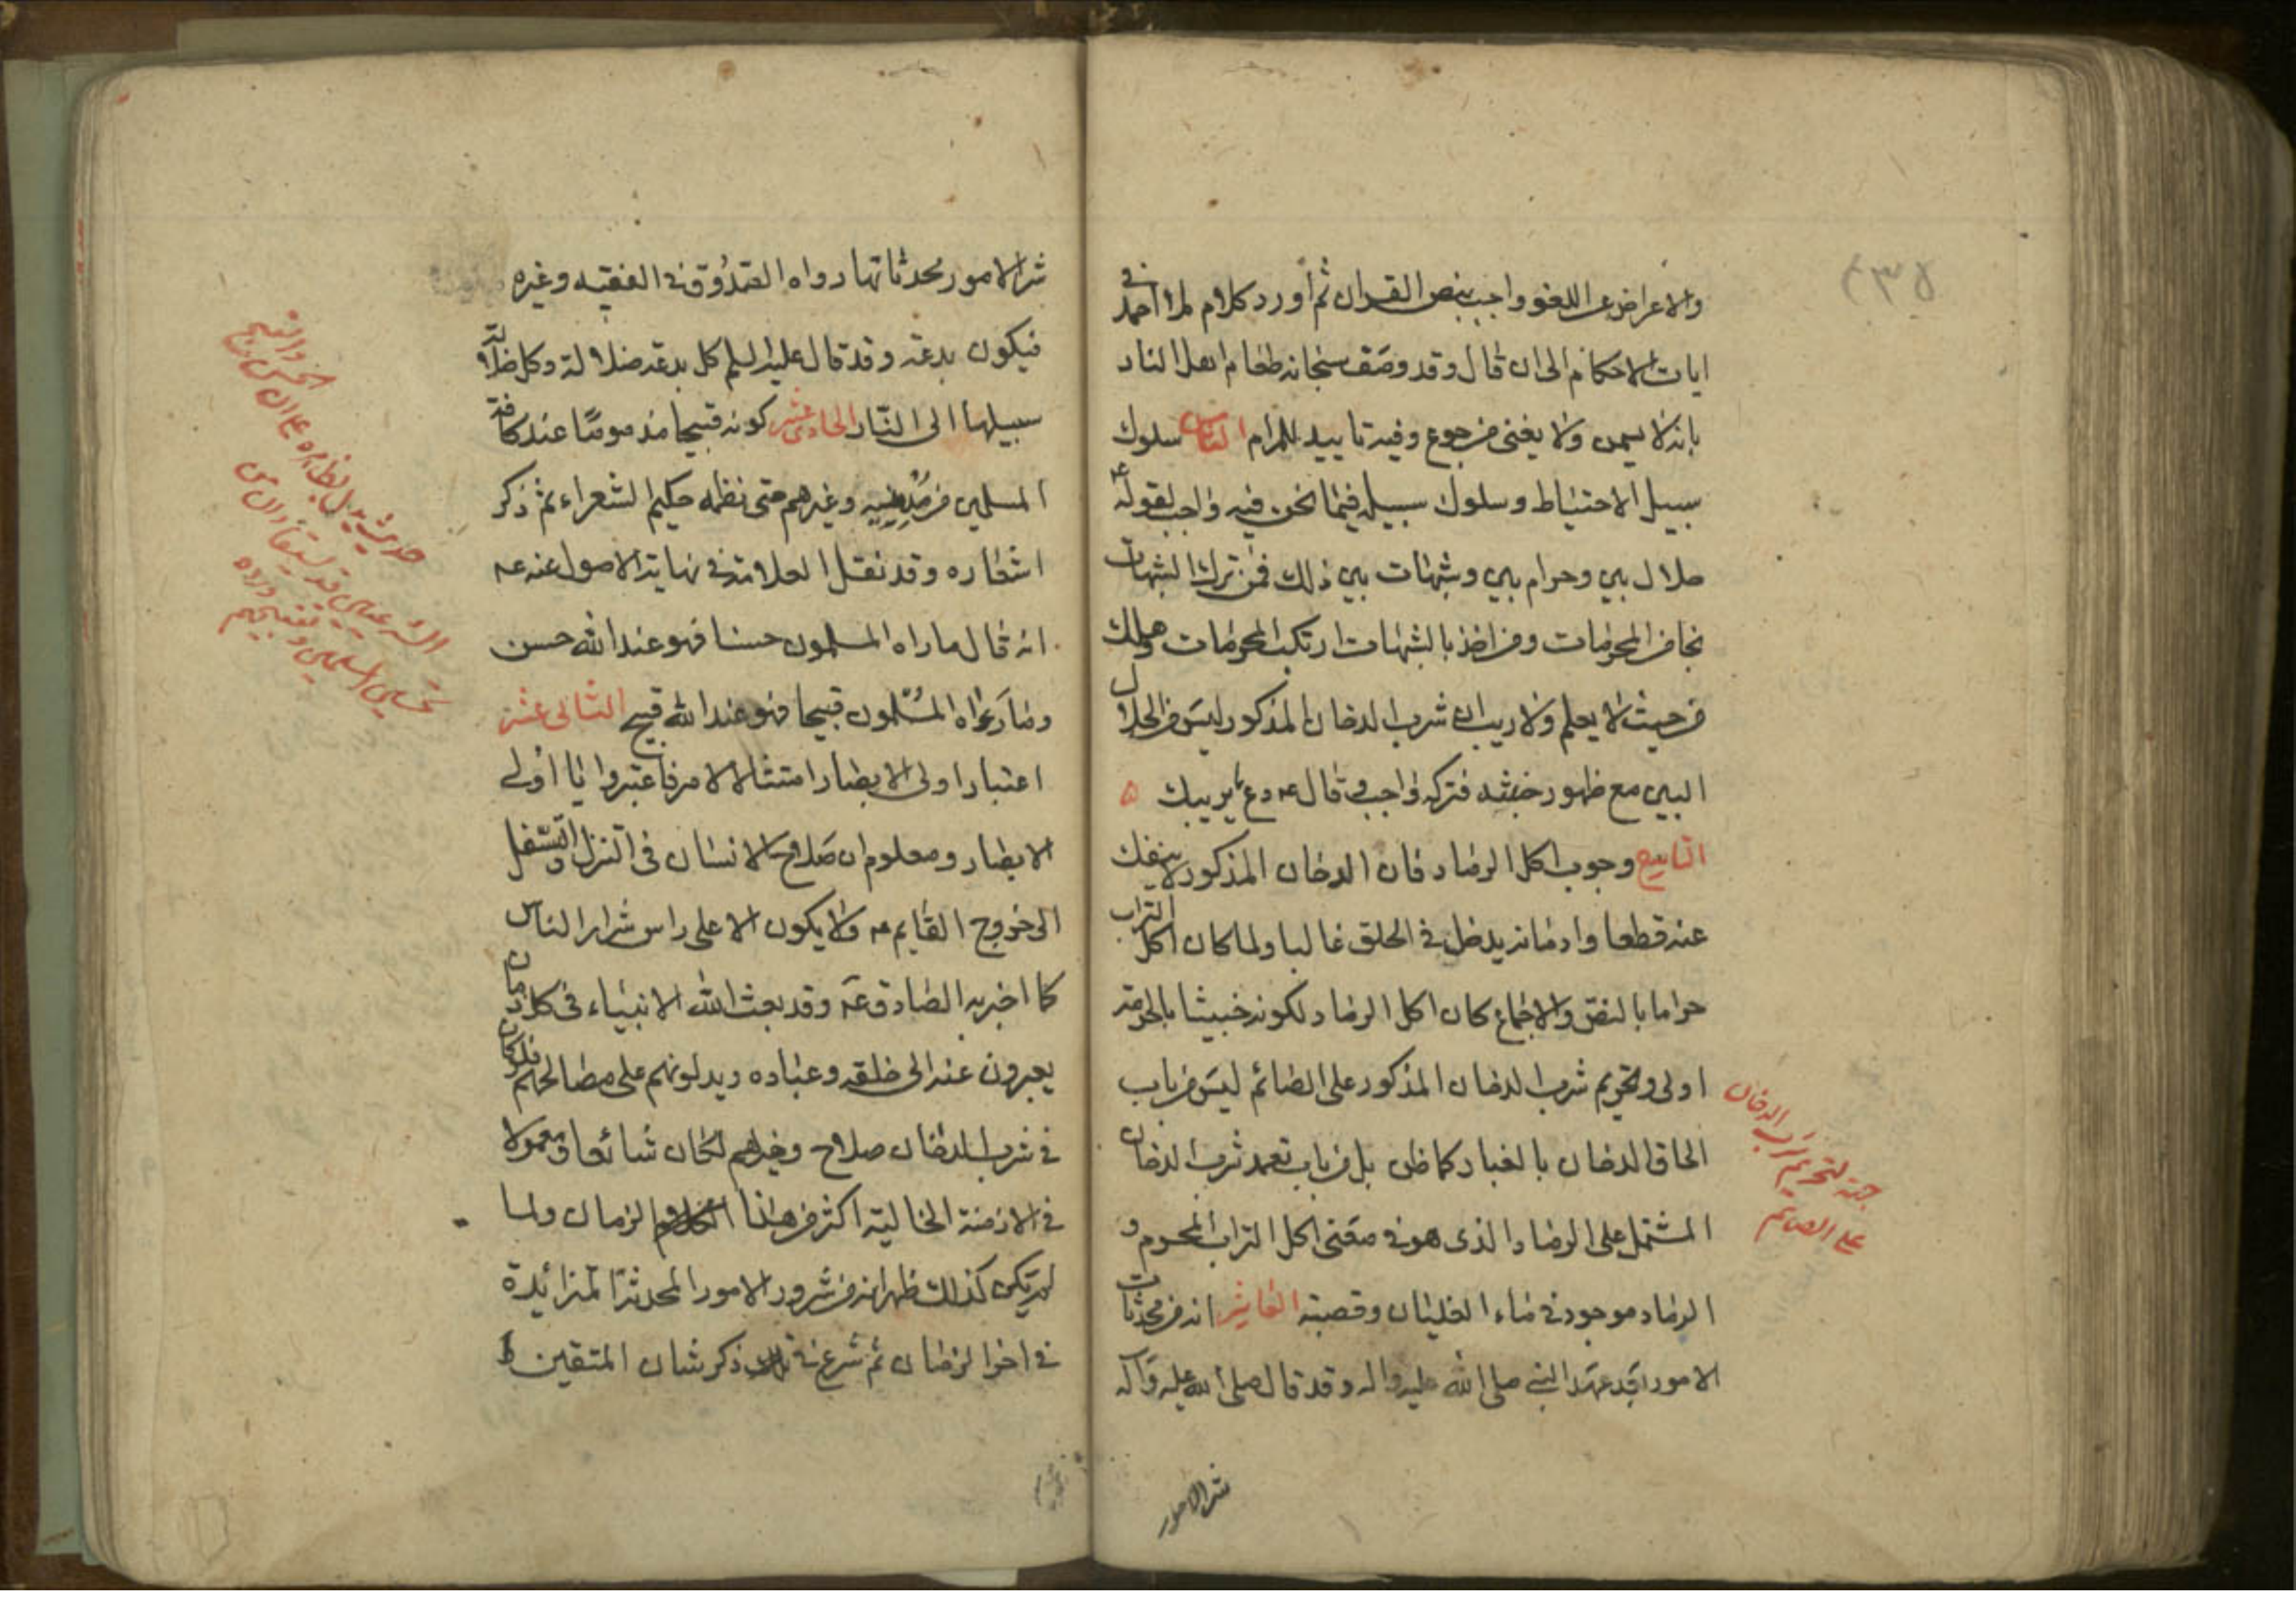 والاعراض عن اللغو واجب بنص القران ثم أورد كلام احمد في
ايات الاحكام الى ان قال وقد وصف سبحانه طعام اهل النار
بانه لا يسمن ولا يغنى من جوع وفيه تاييد للمرام الثامن سلوك
سبيل الاحتياط وسلوك سبيله فيما نحن فيه واجب لقوله ع
حلال بين وحرام بين وشبهات بين ذلك فمن ترك الشبهات
نجا من المحرمات ومن اخذ بالشبهات ارتكب المحرمات وهلك
من حيث لا يعلم ولا ريب ان شرب الدخان المذكور ليس من الحلال
البين مع ظهور خبثه فتركه واجب وقال ع دع ما يريبك
التاسع وجوب اكل الرماد فان الدخان المذكور لا ينفك
عنه قطعا وادمانه يدخل في الحلق غالبا ولما كان اكل التراب
حراما بالنص والاجماع كان اكل الرماد لكونه خبيثا بالحرمة
اولى وتحريم شرب الدخان المذكور على الصائم ليس من باب
الحاق الدخان بالغبار كما ظن بل من باب تعمد شرب الدخان
المشتمل على الرماد الذى هو في معنى اكل التراب المحرم و
الرماد موجود في ماء الغليان وقصبته العاشر انه من محدثات
الامور بعد عهد النبي صلى الله عليه واله وقد قال صلى الله عليه وآله
شر الامور
٤٣٥
جهة تحريم شرب الدخان
على الصايم
شر الامور محدثاتها رواه الصدوق في الفقيه وغيره
فيكون بدعة وقد قال عليه السلم كل بدعة ضلالة وكل ضلالة
سبيلها الى النار الحادى عشر كونه قبيحا مذموما عند كافة
المسلمين من وغيرهم حتى نظمه حكيم الشعراء ثم ذكر
اشعاره وقد نقل العلامة في نهاية الاصول عنه ع
انه قال ما راه المسلمون حسنا فهو عند الله حسن
وما راه المسلمون قبيحا فهو عند الله قبيح الثانى عشر
اعتبار اولى الابصار امتثالا لامر فاعتبروا يا اولى
الابصار ومعلوم ان صلاح الانسان فى التنزل والتسفل
الى خروج القايم ع ولا يكون الا على راس شرار الناس
كما اخبر به الصادق ع وقد بعث الله الانبياء فى كل زمان
يعبرون عنه الى خلقه وعباده ويدلونهم على مصالحهم فلو كان
فى شرب الدخان صلاح وخير لهم لكان شائعا ومعمولا
فى الازمنة الخالية اكثر من هذا الزمان ولما
لم تكن كذلك ظهر انه من شرور الامور المحدثة المتزائدة
فى اخر الزمان ثم شرع في ذكر شان المتقين
حديث يدل بظاهره على ان الحسن والقبح
الشرعيين قد يستفادان من
تحسين المسلمين وتقبيحهم